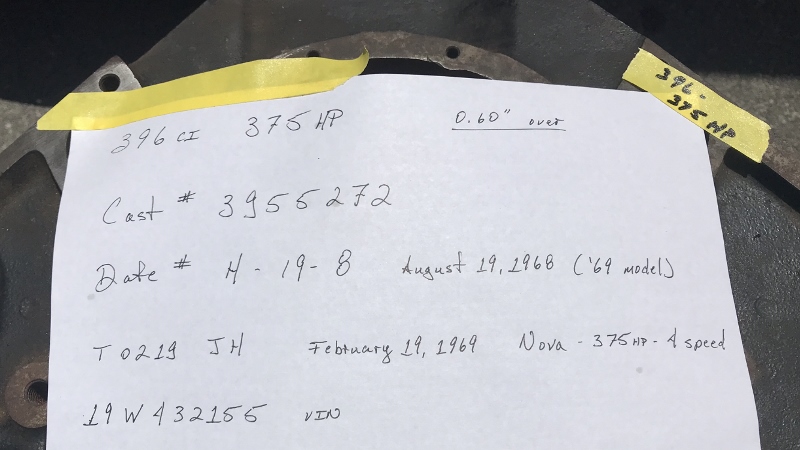 396 CI 375 HP 0.60" over
396-
375 HP
Cast # 3955272
Date # H-19-8 August 19, 1968 ('69 model)
T0219 JH February 19, 1969 Nova - 375 HP - 4 speed
19W432155 VIN